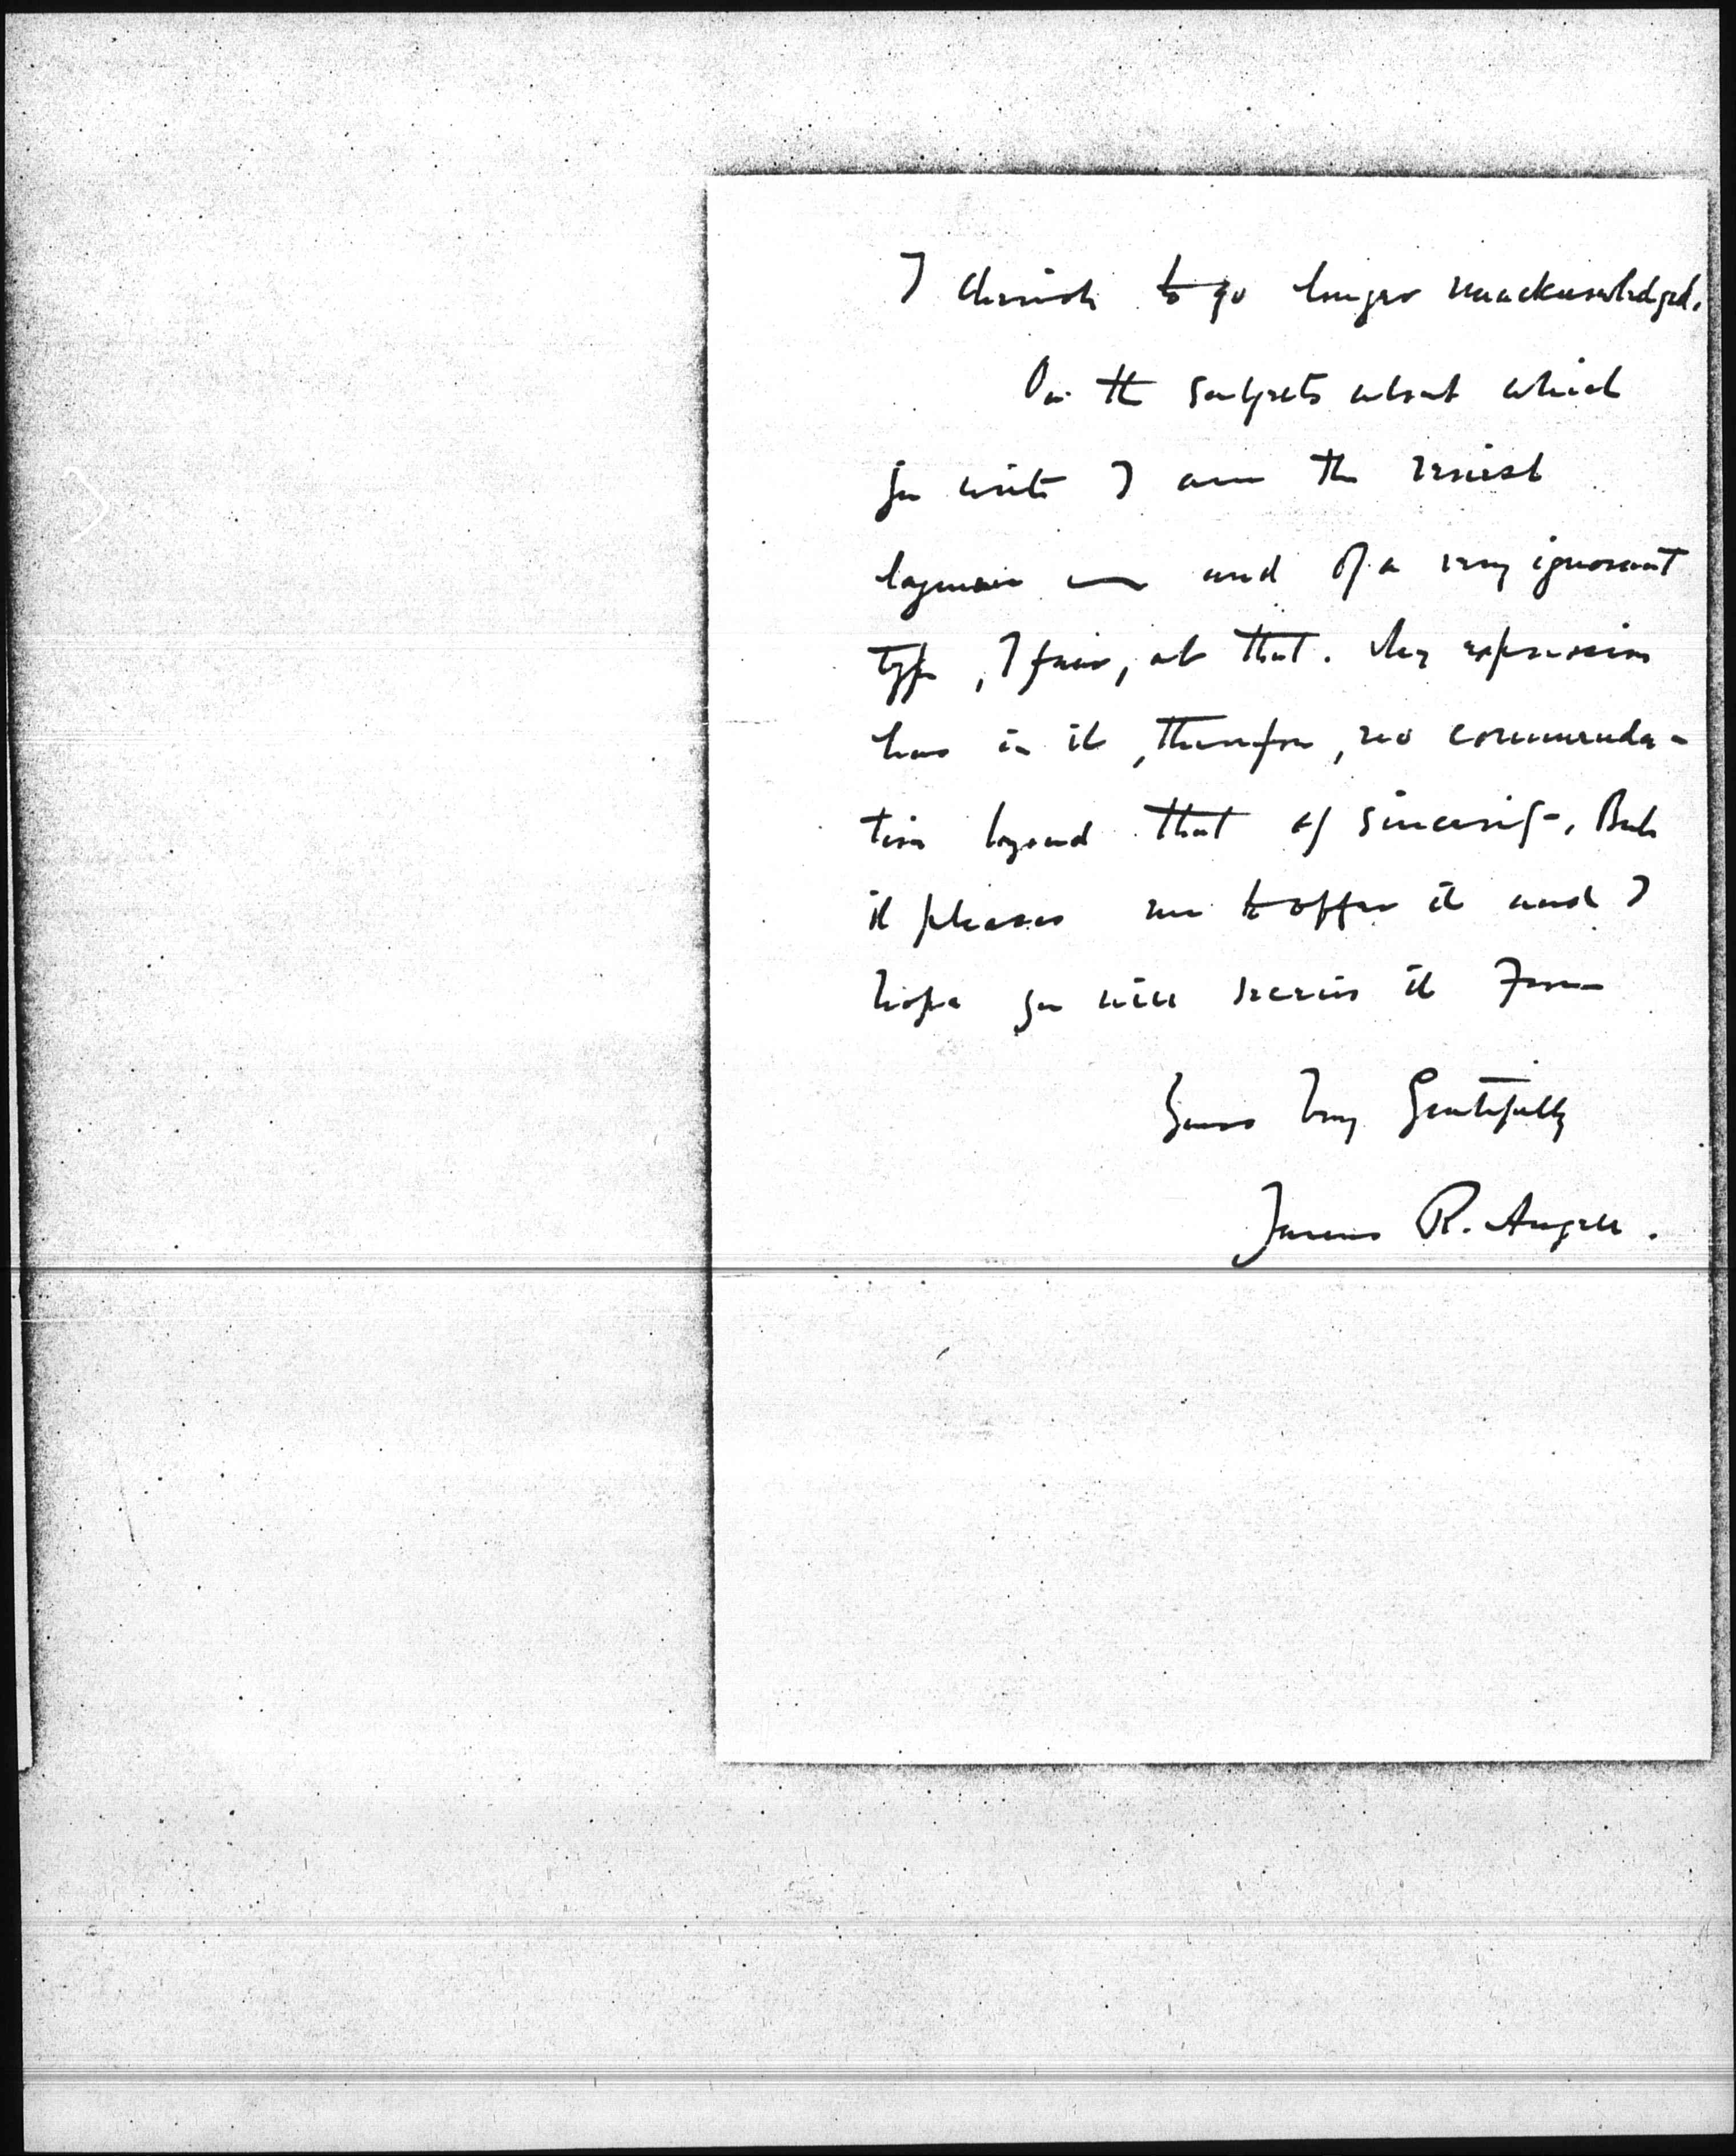 I cherish to go longer unacknowledged.
On the subjects about which
you write I am the veriest
layman — and of a very ignorant
type, I fear, at that. My expression
has in it, therefore, no commenda-
tion beyond that of sincerity. But
it pleases me to offer it and I
hope you will receive it from
Yours Very Gratefully
James R. Angell.